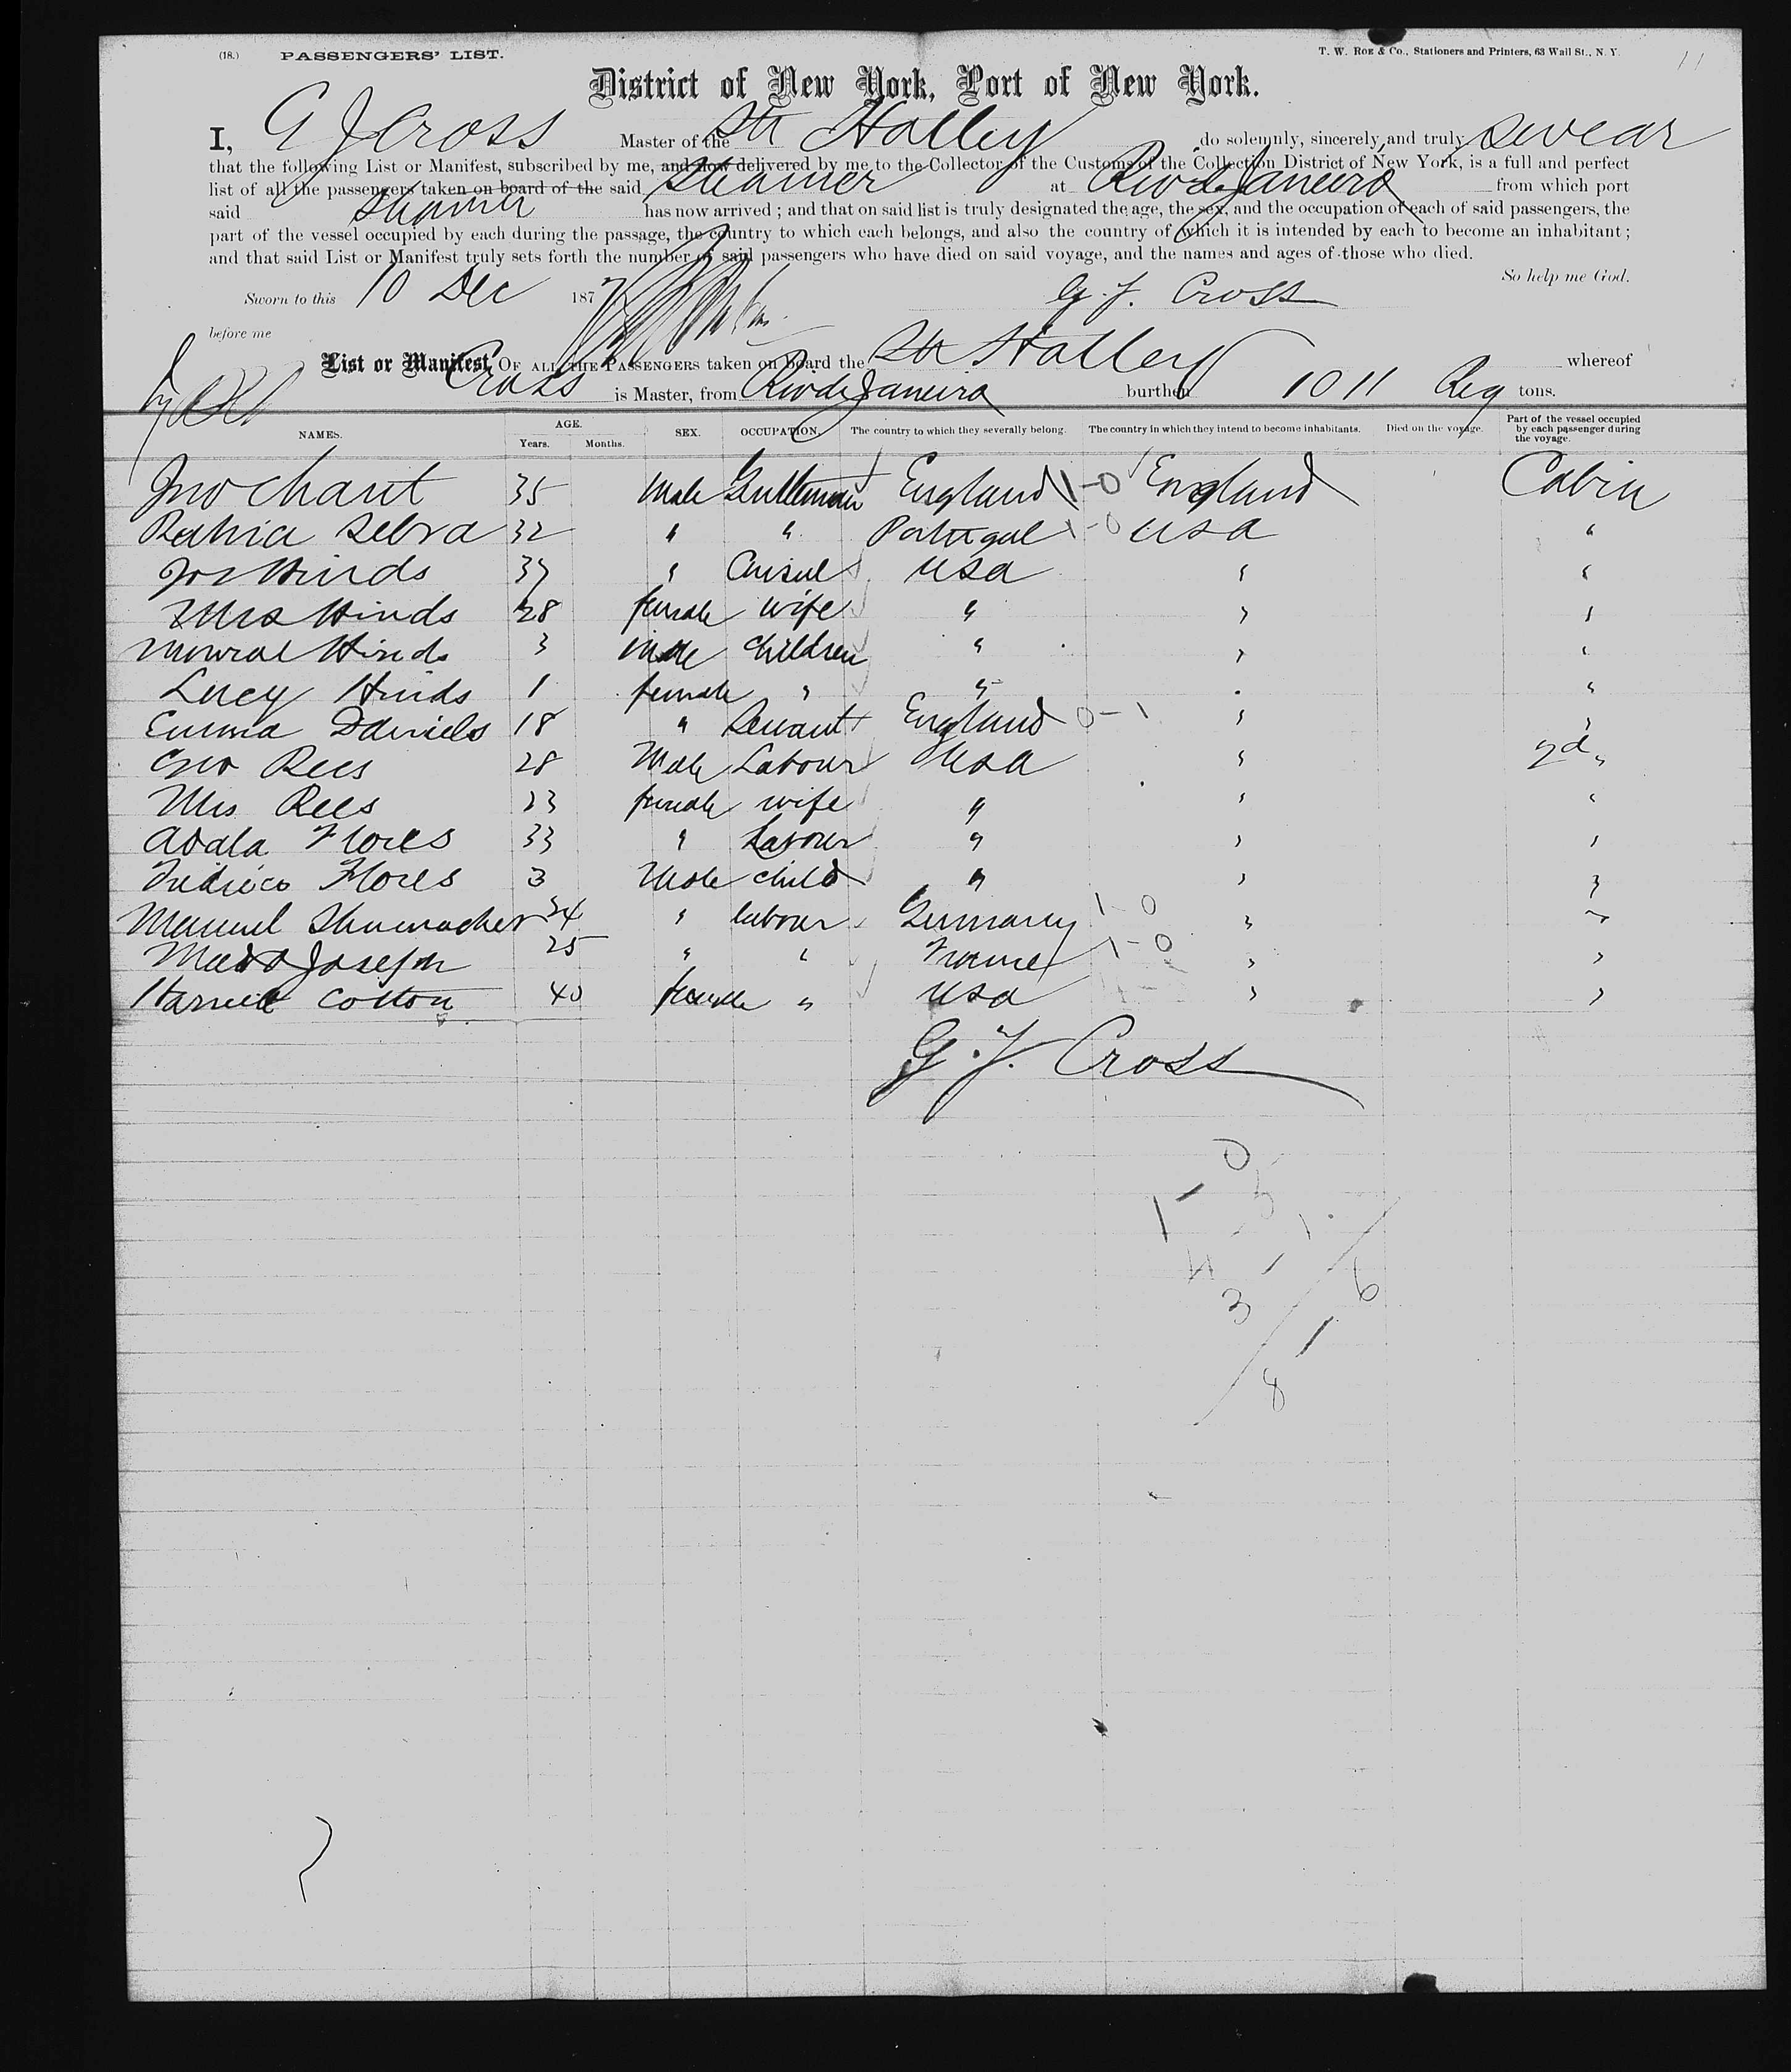 (18.) PASSENGERS' LIST. T. W. ROE & Co., Stationers and Printers, 63 Wall St., N. Y. 11
District of New York, Port of New York.
I, G J Cross Master of the Str Halley do solemnly, sincerely and truly swear
that the following List or Manifest, subscribed by me, and now delivered by me to the Collector of the Customs of the Collection District of New York, is a full and perfect
list of all the passengers taken on board of the said Steamer at Rio de Janeiro from which port
said Steamer has now arrived ; and that on said list is truly designated the age, the sex, and the occupation of each of said passengers, the
part of the vessel occupied by each during the passage, the country to which each belongs, and also the country of which it is intended by each to become an inhabitant ;
and that said List or Manifest truly sets forth the number of said passengers who have died on said voyage, and the names and ages of those who died.
So help me God.
Sworn to this 10 Dec 187 G. J. Cross
before me
List or Manifest OF ALL THE PASSENGERS taken on board the Str Halley whereof
Cross is Master, from Rio de Janeiro burthen 1011 Reg tons.
NAMES. AGE. Years. Months. SEX. OCCUPATION. The country to which they severally belong. The country in which they intend to become inhabitants. Died on the voyage. Part of the vessel occupied by each passenger during the voyage.
Jno Chant 35 Male Gentleman England 1-0 England Cabin
32 " " Portugal 1-0 USA "
Hinds " USA " "
Mrs Hinds 28 female wife " " "
Hinds 3 male Children " " "
Lucy Hinds 1 female " " " "
Emma Daniels 18 " Servant England 0-1 " "
Geo Rees 28 Male Labour USA " 2d "
Mrs Rees 23 female wife " " "
Flores 33 " Labour " " "
Flores 3 Male child " " "
Manuel Shumacher 34 " labour Germany 1-0 " "
Joseph 25 " " France 1-0 " "
Harriet Cotton 40 female " USA " "
G. J. Cross
1-0
5
4 - 1
3 6
8 1